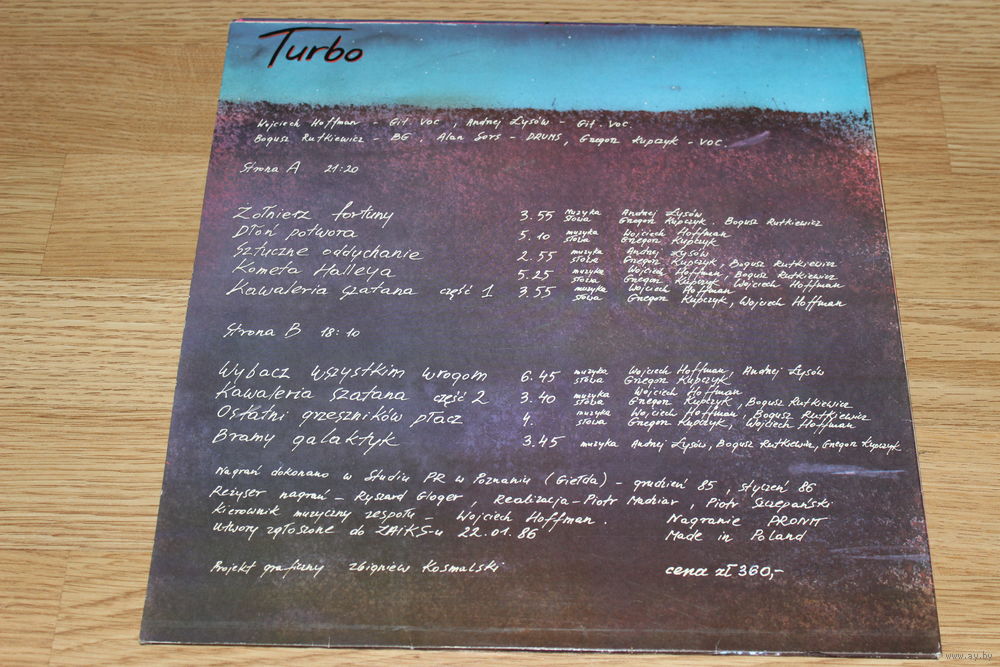 Turbo
Wojciech Hoffman - Git. voc, Andrzej Łysów - Git. voc.
Bogusz Rutkiewicz - BG, Alan Sors - DRUMS, Grzegorz Kupczyk - voc.
Strona A 21:20
Żołnierz fortuny 3.55 Muzyka Andrzej Łysów
słowa Grzegorz Kupczyk, Bogusz Rutkiewicz
Dłoń potwora 5.10 muzyka Wojciech Hoffman
słowa Grzegorz Kupczyk
Sztuczne oddychanie 2.55 muzyka Andrzej Łysów
słowa Grzegorz Kupczyk, Bogusz Rutkiewicz
Kometa Halleya 5.25 muzyka Wojciech Hoffman, Bogusz Rutkiewicz
słowa Grzegorz Kupczyk, Wojciech Hoffman
Kawaleria szatana część 1 3.55 muzyka Wojciech Hoffman
słowa Grzegorz Kupczyk, Wojciech Hoffman
Strona B 18:10
Wybacz wszystkim wrogom 6.45 muzyka Wojciech Hoffman, Andrzej Łysów
słowa Grzegorz Kupczyk
Kawaleria szatana część 2 3.40 muzyka Wojciech Hoffman
słowa Grzegorz Kupczyk, Bogusz Rutkiewicz
Ostatni grzeszników płacz 4. muzyka Wojciech Hoffman, Bogusz Rutkiewicz
słowa Grzegorz Kupczyk, Wojciech Hoffman
Bramy galaktyk 3.45 muzyka Andrzej Łysów, Bogusz Rutkiewicz, Grzegorz Kupczyk
Nagrań dokonano w Studiu PR w Poznaniu (Giełda) - grudzień 85, styczeń 86
Reżyser nagrań - Ryszard Gloger, Realizacja - Piotr Madziar, Piotr Szczepański
Kierownik muzyczny zespołu - Wojciech Hoffman. Nagranie PRONIT
Utwory zgłoszone do ZAiKS-u 22.01.86 Made in Poland
Projekt graficzny Zbigniew Kosmalski cena zł 360,-
www.ay.by